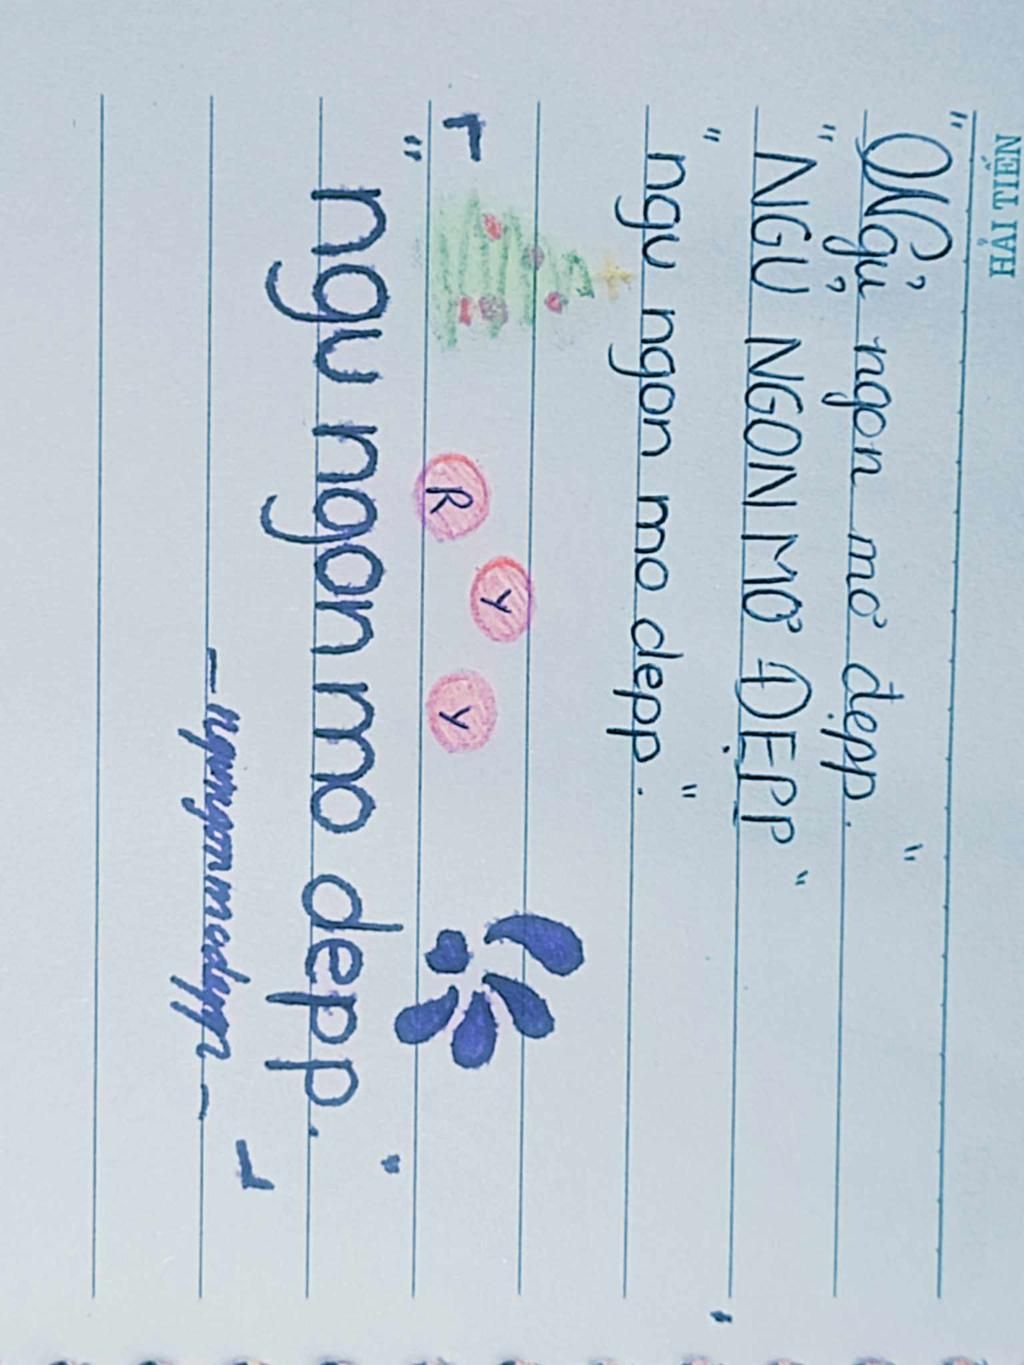 HẢI TIẾN
"Ngủ ngon mơ đẹpp."
"NGỦ NGON MƠ ĐẸPP"
"ngu ngon mo depp."
R y y
"ngu ngon mo depp."
- ngungonmodepp -